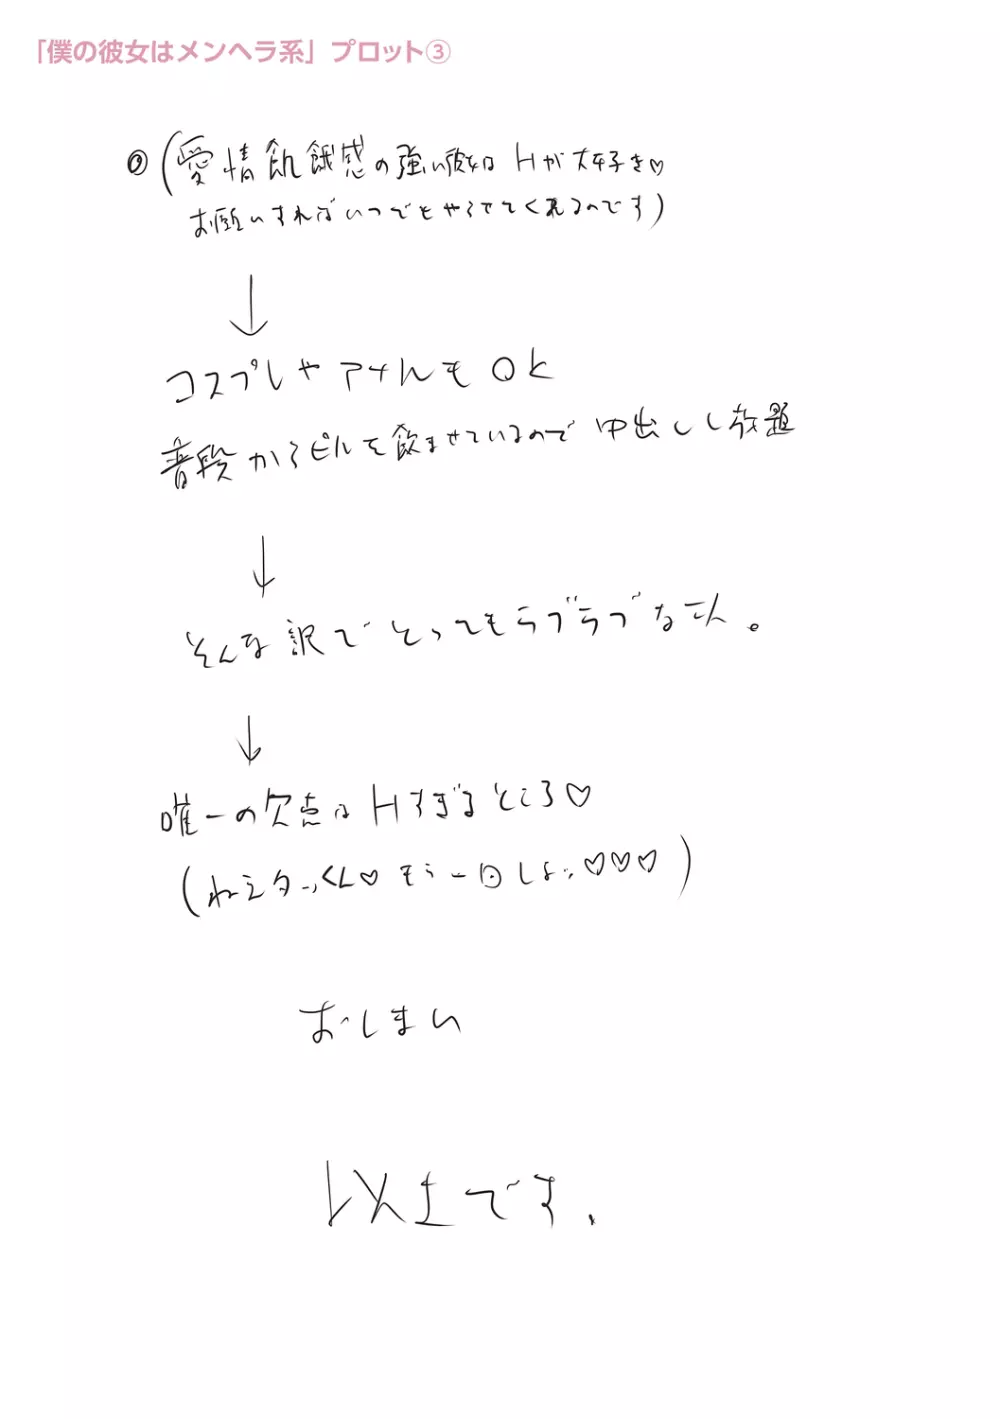 「僕の彼女はメンヘラ系」プロット③
◎(愛情飢餓感の強い彼女は Hが大好き♡
お願いすればいつでもやらせてくれるのです)
↓
コスプレや アナルも OK
普段からピルを飲ませているので 中出しし放題
↓
そんな訳で とってもラブラブな二人。
↓
唯一の欠点は Hすぎるところ♡
(ねえタっくん♡ もう一回しよっ♡♡♡)
おしまい
以上です.